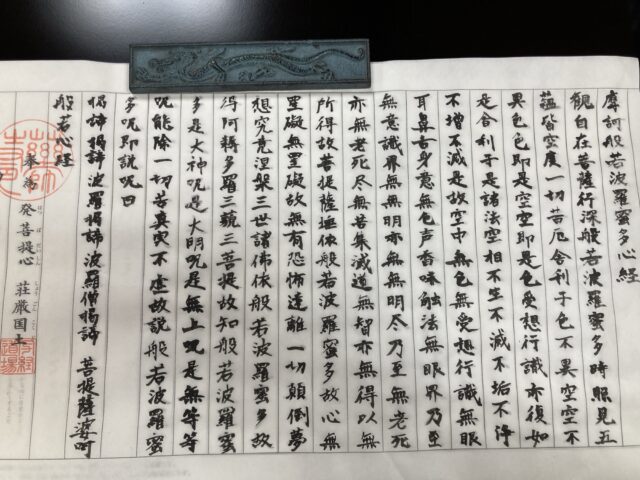 摩訶般若波羅蜜多心経
観自在菩薩行深般若波羅蜜多時照見五
蘊皆空度一切苦厄舎利子色不異空空不
異色色即是空空即是色受想行識亦復如
是舎利子是諸法空相不生不滅不垢不浄
不増不減是故空中無色無受想行識無眼
耳鼻舌身意無色声香味触法無眼界乃至
無意識界無無明亦無無明尽乃至無老死
亦無老死尽無苦集滅道無智亦無得以無
所得故菩提薩埵依般若波羅蜜多故心無
罣礙無罣礙故無有恐怖遠離一切顛倒夢
想究竟涅槃三世諸佛依般若波羅蜜多故
得阿耨多羅三藐三菩提故知般若波羅蜜
多是大神呪是大明呪是無上呪是無等等
呪能除一切苦真実不虚故説般若波羅蜜
多呪即説呪曰
羯諦羯諦波羅羯諦波羅僧羯諦 菩提薩婆訶
般若心経
奉為 発菩提心 荘厳国土